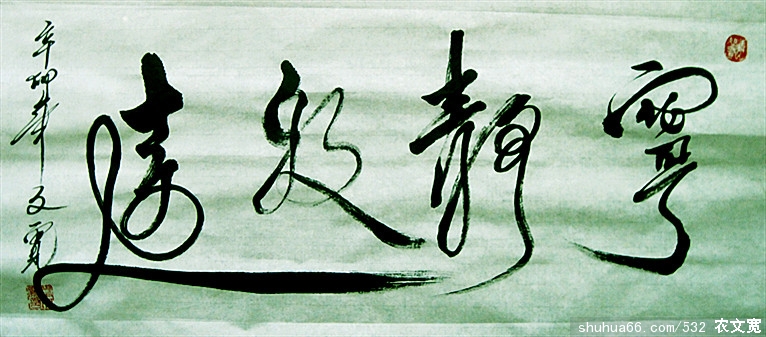 寧靜致遠
辛卯年 文寬
shuhua66.com/532 农文宽